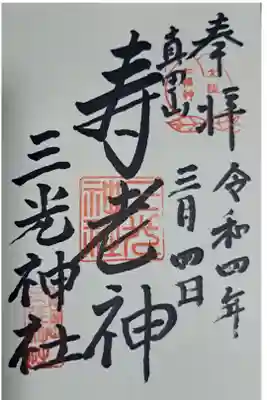 奉拝
令和四年
三月四日
真田山
寿老神
三光神社